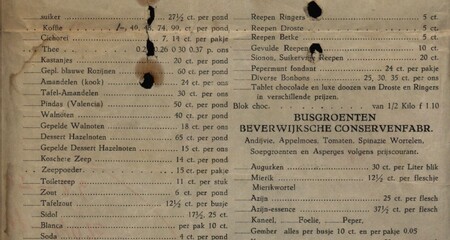 suiker 27½ ct. per pond
Koffie 49, 48, 74, 99, ct. per pond
Cichorei 7, 14 ct. per pakje
Thee 0.26 0 30 0.37 p. ons
Kastanjes 20 ct. per pond
Gepl. blauwe Rozijnen 60 ct. per pond
Amandelen (kook) 24 ct. per ons
Tafel-Amandelen 30 ct. per ons
Pindas (Valencia) 50 ct. per pond
Walnoten 40 ct. per pond
Gepelde Walnoten 18 ct. per ons
Dessert Hazelnoten 65 ct. per pond
Gepelde Dessert Hazelnoten 15 ct. per ons
Koschere Zeep 14 ct. per pond
Zeeppoeder 15 ct. per pakje
Toiletzeep 11 ct. per stuk
Zout 6 ct. per pond
Tafelzout 12½ ct. per busje
Sidol 17½, 25 ct.
Blanca per pak 10 ct.
Soda 4 ct. per pond
Reepen Ringers 5 ct.
Reepen Droste 5 ct.
Reepen Betke 5 ct.
Gevulde Reepen 10 ct.
Sionon, Suikervrije Reepen 20 ct.
Pepermunt fondant 24 ct. per pakje
Diverse Bonbons 25, 30, 35 ct. per ons
Tablet chocolade en luxe doozen van Droste en Ringers
in verschillende prijzen.
Blok choc. van 1/2 Kilo f 1.10
BUSGROENTEN
BEVERWIJKSCHE CONSERVENFABR.
Andijvie, Appelmoes, Tomaten, Spinazie Wortelen,
Soepgroenten en Asperges volgens prijscourant.
Augurken 30 ct. per Liter blik
Mierik 12½ ct. per fleschje
Mierikwortel
Azijn 25 ct. per flesch
Azijn-essence 37½ ct. per flesch
Kaneel, Foelie, Peper,
Gember alles per busje 10 ct. en per pakje 0.05